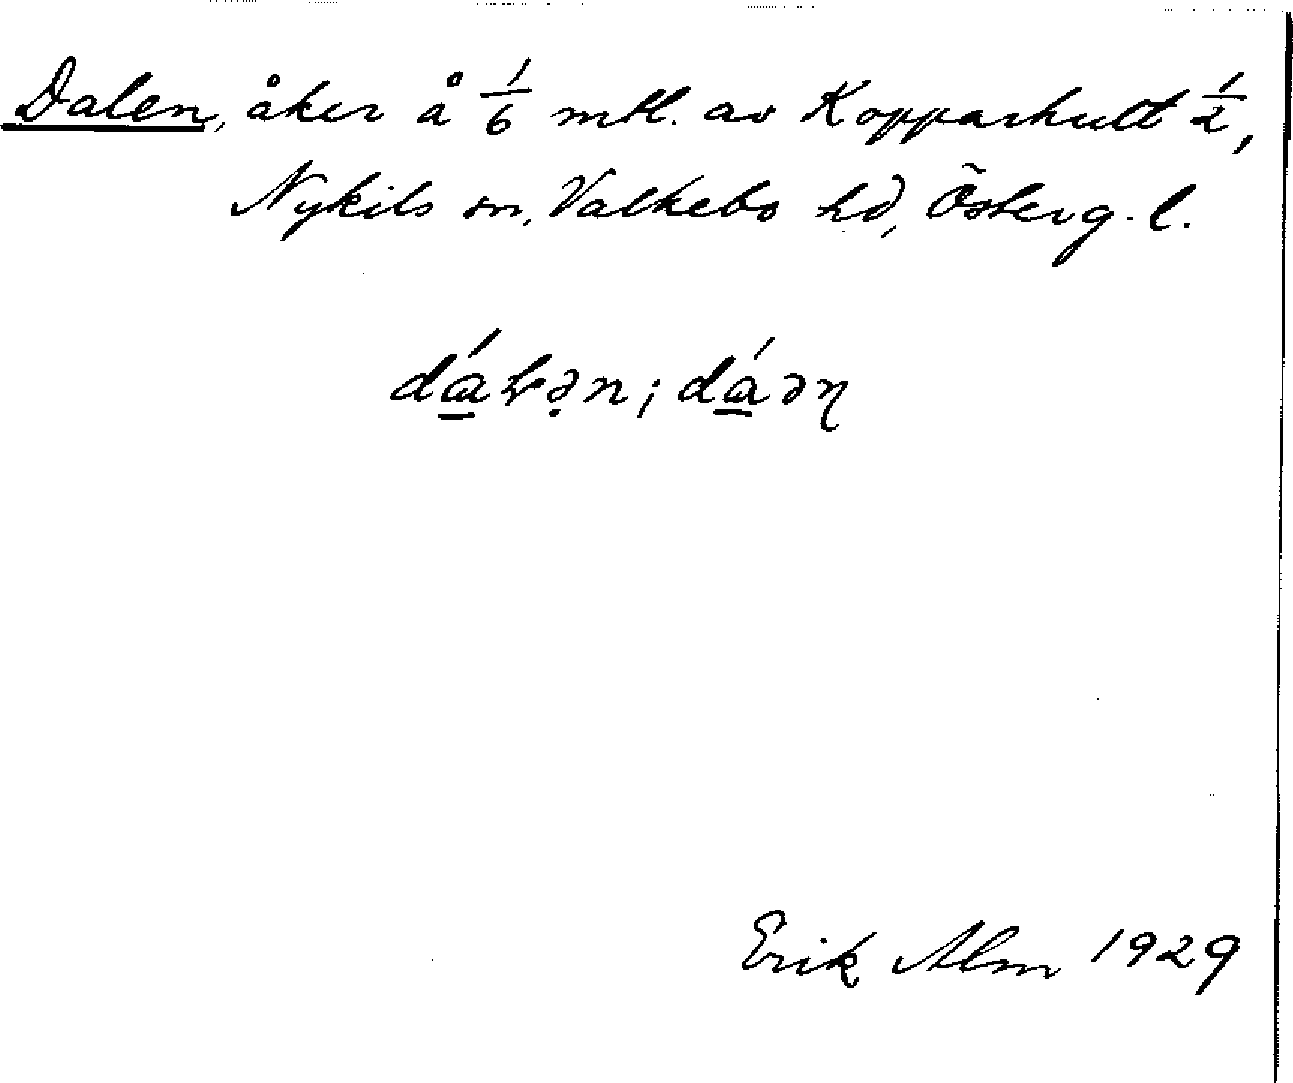 Dalen, åker å 1/6 mtl. av Kopparhult 1/2,
Nykils sn, Valkebo hd, Österg. l.
dɑ̲́ɫə̣n; dɑ̲́əɳ
Erik Alm 1929